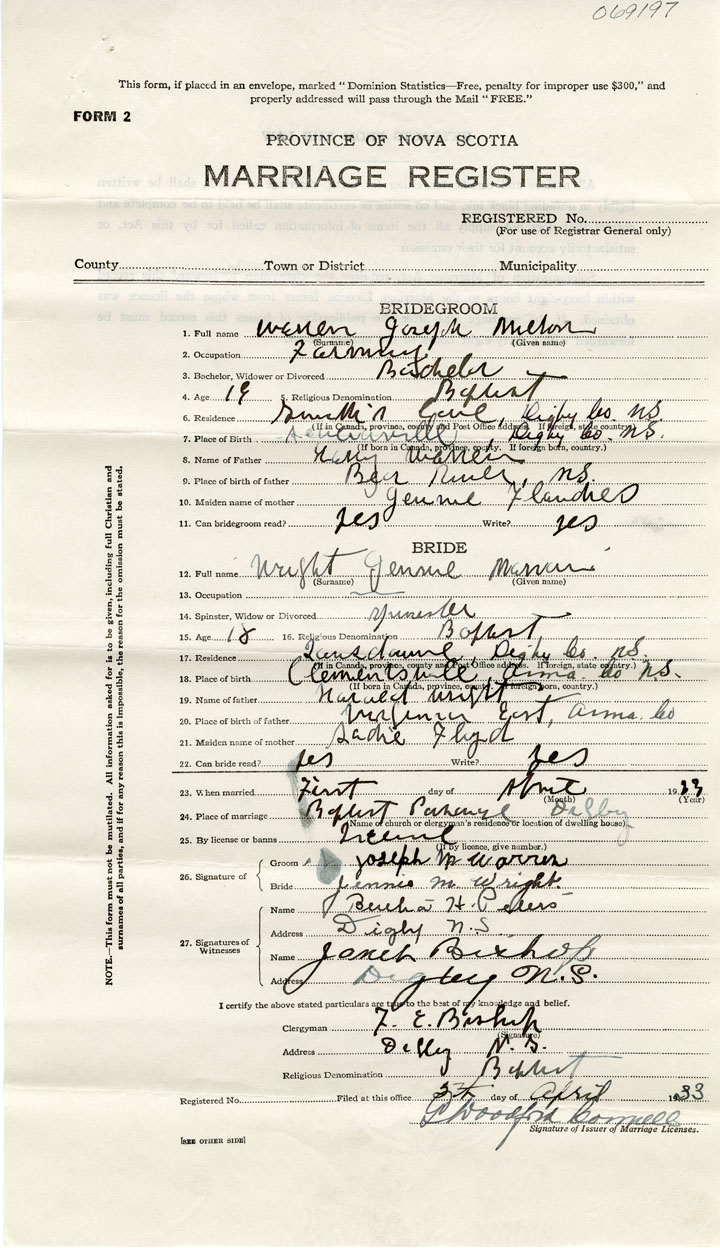 069197
This form, if placed in an envelope, marked "Dominion Statistics—Free, penalty for improper use $300," and
properly addressed will pass through the Mail "FREE."
FORM 2
PROVINCE OF NOVA SCOTIA
MARRIAGE REGISTER
REGISTERED No.
(For use of Registrar General only)
County Town or District Municipality
BRIDEGROOM
1. Full name Warren Joseph Milton
(Surname) (Given name)
2. Occupation Farming
3. Bachelor, Widower or Divorced Bachelor
4. Age 19 5. Religious Denomination Baptist
6. Residence Smith's Cove, Digby Co. N.S.
(If in Canada, province, county and Post Office address. If foreign, state country.)
7. Place of Birth Digby Co. N.S.
(If born in Canada, province, county. If foreign born, country.)
8. Name of Father Harry Warren
9. Place of birth of father Bear River, N.S.
10. Maiden name of mother Jennie Flandres
11. Can bridegroom read? yes Write? yes
BRIDE
12. Full name Wright Jennie
(Surname) (Given name)
13. Occupation
14. Spinster, Widow or Divorced Spinster
15. Age 18 16. Religious Denomination Baptist
17. Residence Lansdowne Digby Co. N.S.
(If in Canada, province, county and Post Office address. If foreign, state country.)
18. Place of birth Clementsvale, Anna. Co N.S.
(If born in Canada, province, county. If foreign born, country.)
19. Name of father Harold Wright
20. Place of birth of father Virginia East, Anna. Co
21. Maiden name of mother Sadie Floyd
22. Can bride read? yes Write? yes
23. When married First day of April 1933
(Month) (Year)
24. Place of marriage Baptist Parsonage Digby
(Name of church or clergyman's residence or location of dwelling house)
25. By license or banns License
(If by licence, give number.)
26. Signature of Groom Joseph M Warren
Bride Jennie M. Wright
27. Signatures of Witnesses
Name Bertha H. Peters
Address Digby N.S.
Name Janet Bishop
Address Digby N.S.
I certify the above stated particulars are true to the best of my knowledge and belief.
Clergyman F. E. Bishop
(Signature)
Address Digby N.S.
Religious Denomination Baptist
Registered No. Filed at this office 5th day of April 1933
Signature of Issuer of Marriage Licenses.
[SEE OTHER SIDE]
NOTE.—This form must not be mutilated. All information asked for is to be given, including full Christian and
surnames of all parties, and if for any reason this is impossible, the reason for the omission must be stated.